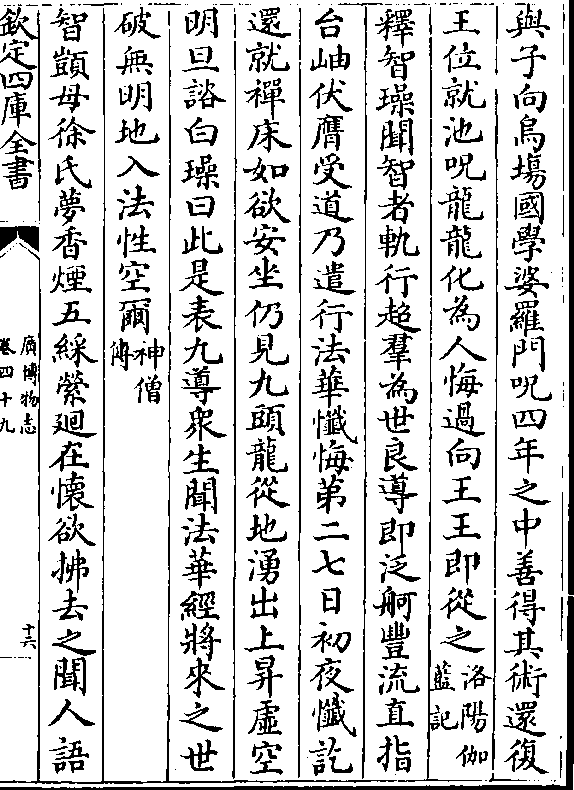 與子向烏場國學婆羅門呪四年之中善得其術還復
王位就池呪龍龍化為人悔過向王王即從之洛陽伽
藍記
釋智璪聞智者軌行超羣為世良導即泛舸豐流直指
台岫伏膺受道乃遣行法華懺悔第二七日初夜懺訖
還就禪床如欲安坐仍見九頭龍從地湧出上昇虛空
明旦諮白璪曰此是表九導衆生聞法華經將來之世
破無明地入法性空爾神僧
傳
智顗母徐氏夢香煙五綵縈迴在懷欲拂去之聞人語
欽定四庫全書
廣博物志
卷四十九
十六